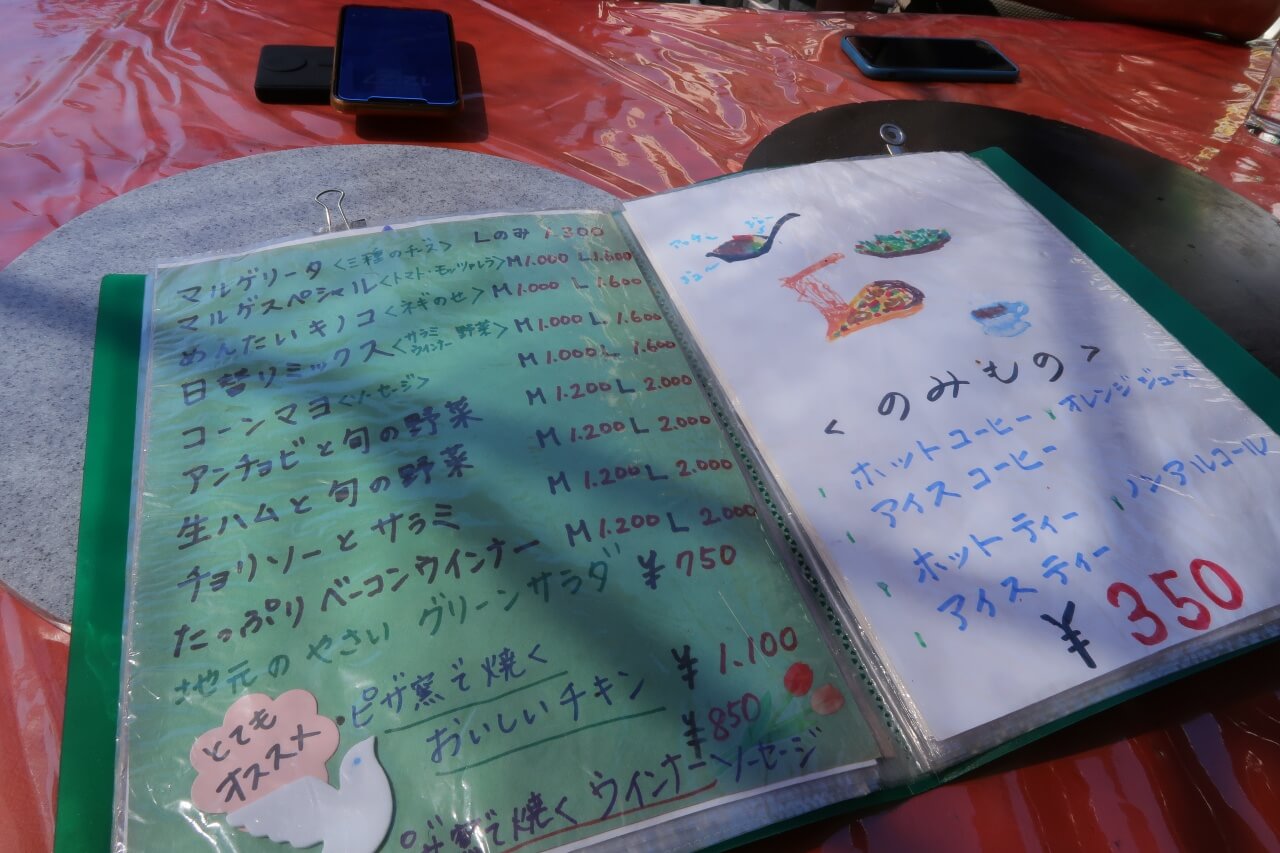 マルゲリータ<三種のチーズ> Lのみ 1.300
マルゲスペシャル<トマト・モッツァレラ> M1.000 L1.600
めんたいキノコ<ネギのせ> M1.000 L1.600
日替リミックス<サラミ ウインナー 野菜> M1.000 L1.600
コーンマヨ<ソーセージ> M1.000 L1.600
アンチョビと旬の野菜 M1.200 L2.000
生ハムと旬の野菜 M1.200 L2.000
チョリソーとサラミ M1.200 L2.000
たっぷりベーコンウインナー M1.200 L2.000
地元のやさい グリーンサラダ ¥750
とても
オススメ
・ピザ窯で焼く
おいしいチキン ¥1.100
ピザ窯で焼く ウインナーソーセージ ¥850
ジュー
ジュー
<のみもの>
ホットコーヒー オレンジジュース
アイスコーヒー
ホットティー ノンアルコール
アイスティー
¥350